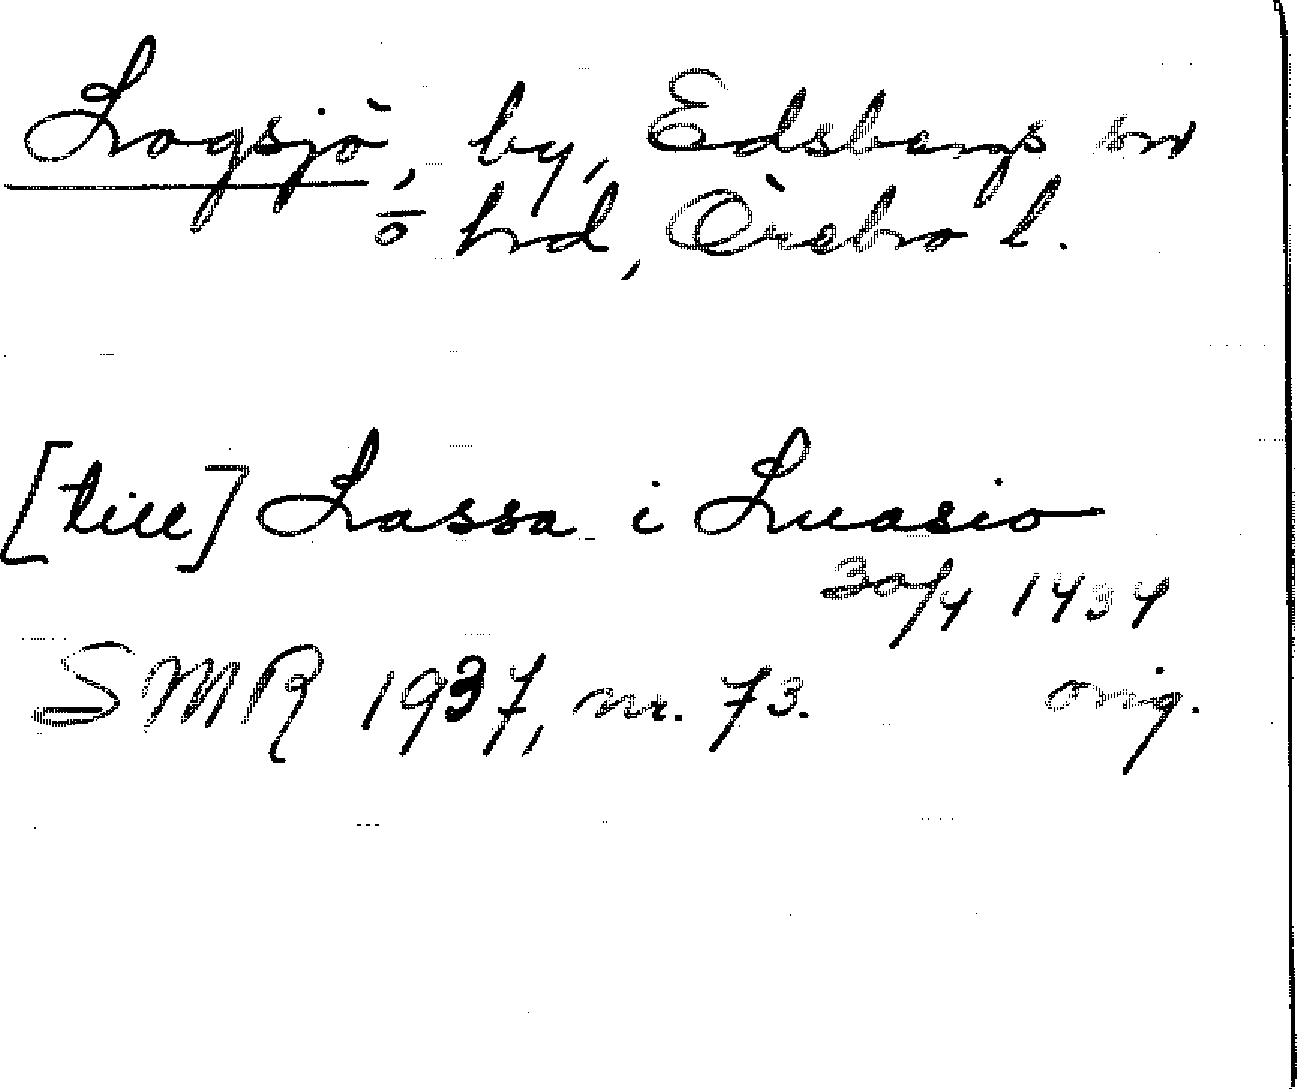 Logsjö, by, Edsbergs sn
o hrd, Örebro l.
[till] Lassa i Luasio
30/4 1434
SMR 1937, nr. 73. orig.